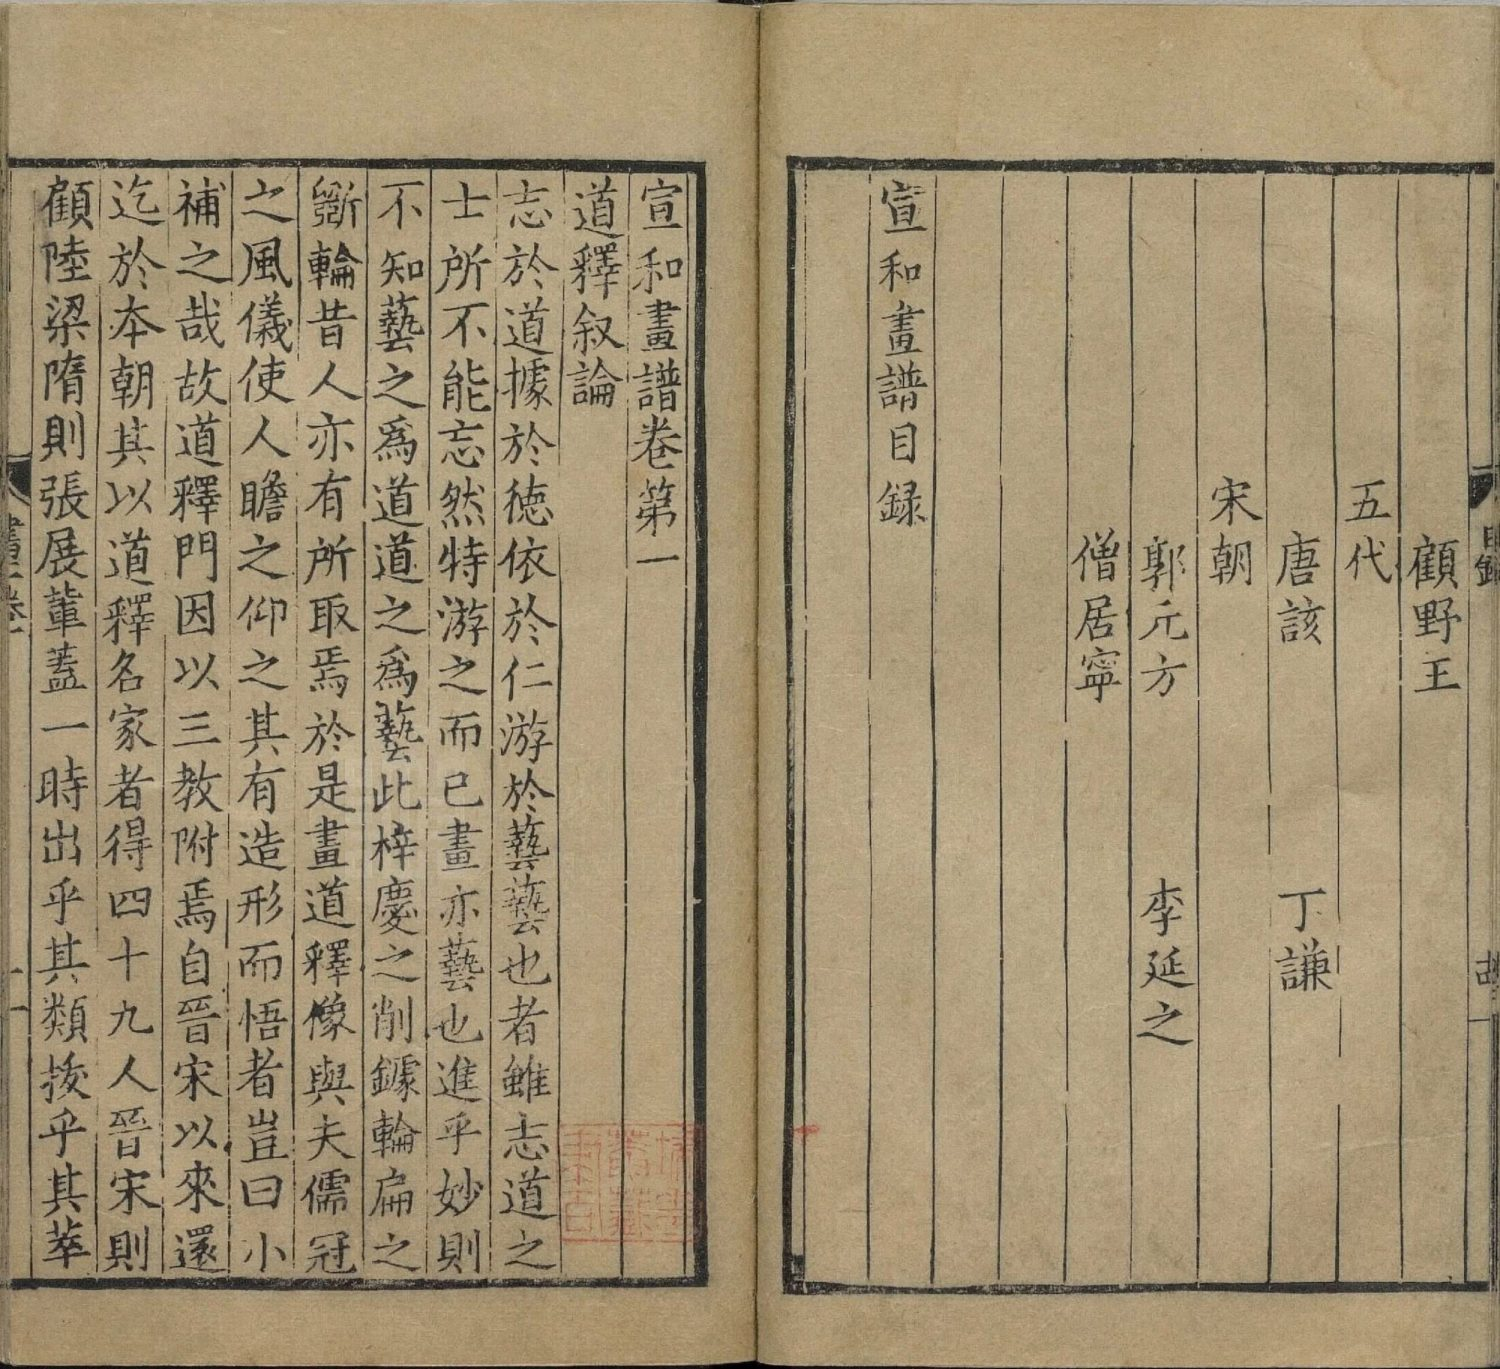 顧野王
五代
唐該 丁謙
宋朝
郭元方 李延之
僧居寧
宣和畫譜目録
宣和畫譜卷第一
道釋叙論
志於道據於德依於仁游於藝藝也者雖志道之
士所不能忘然特游之而已畫亦藝也進乎妙則
不知藝之爲道道之爲藝此梓慶之削鐻輪扁之
斲輪昔人亦有所取焉於是畫道釋像與夫儒冠
之風儀使人瞻之仰之其有造形而悟者豈曰小
補之哉故道釋門因以三教附焉自晉宋以來還
迄於本朝其以道釋名家者得四十九人晉宋則
顧陸梁隋則張展輩蓋一時出乎其類拔乎其萃